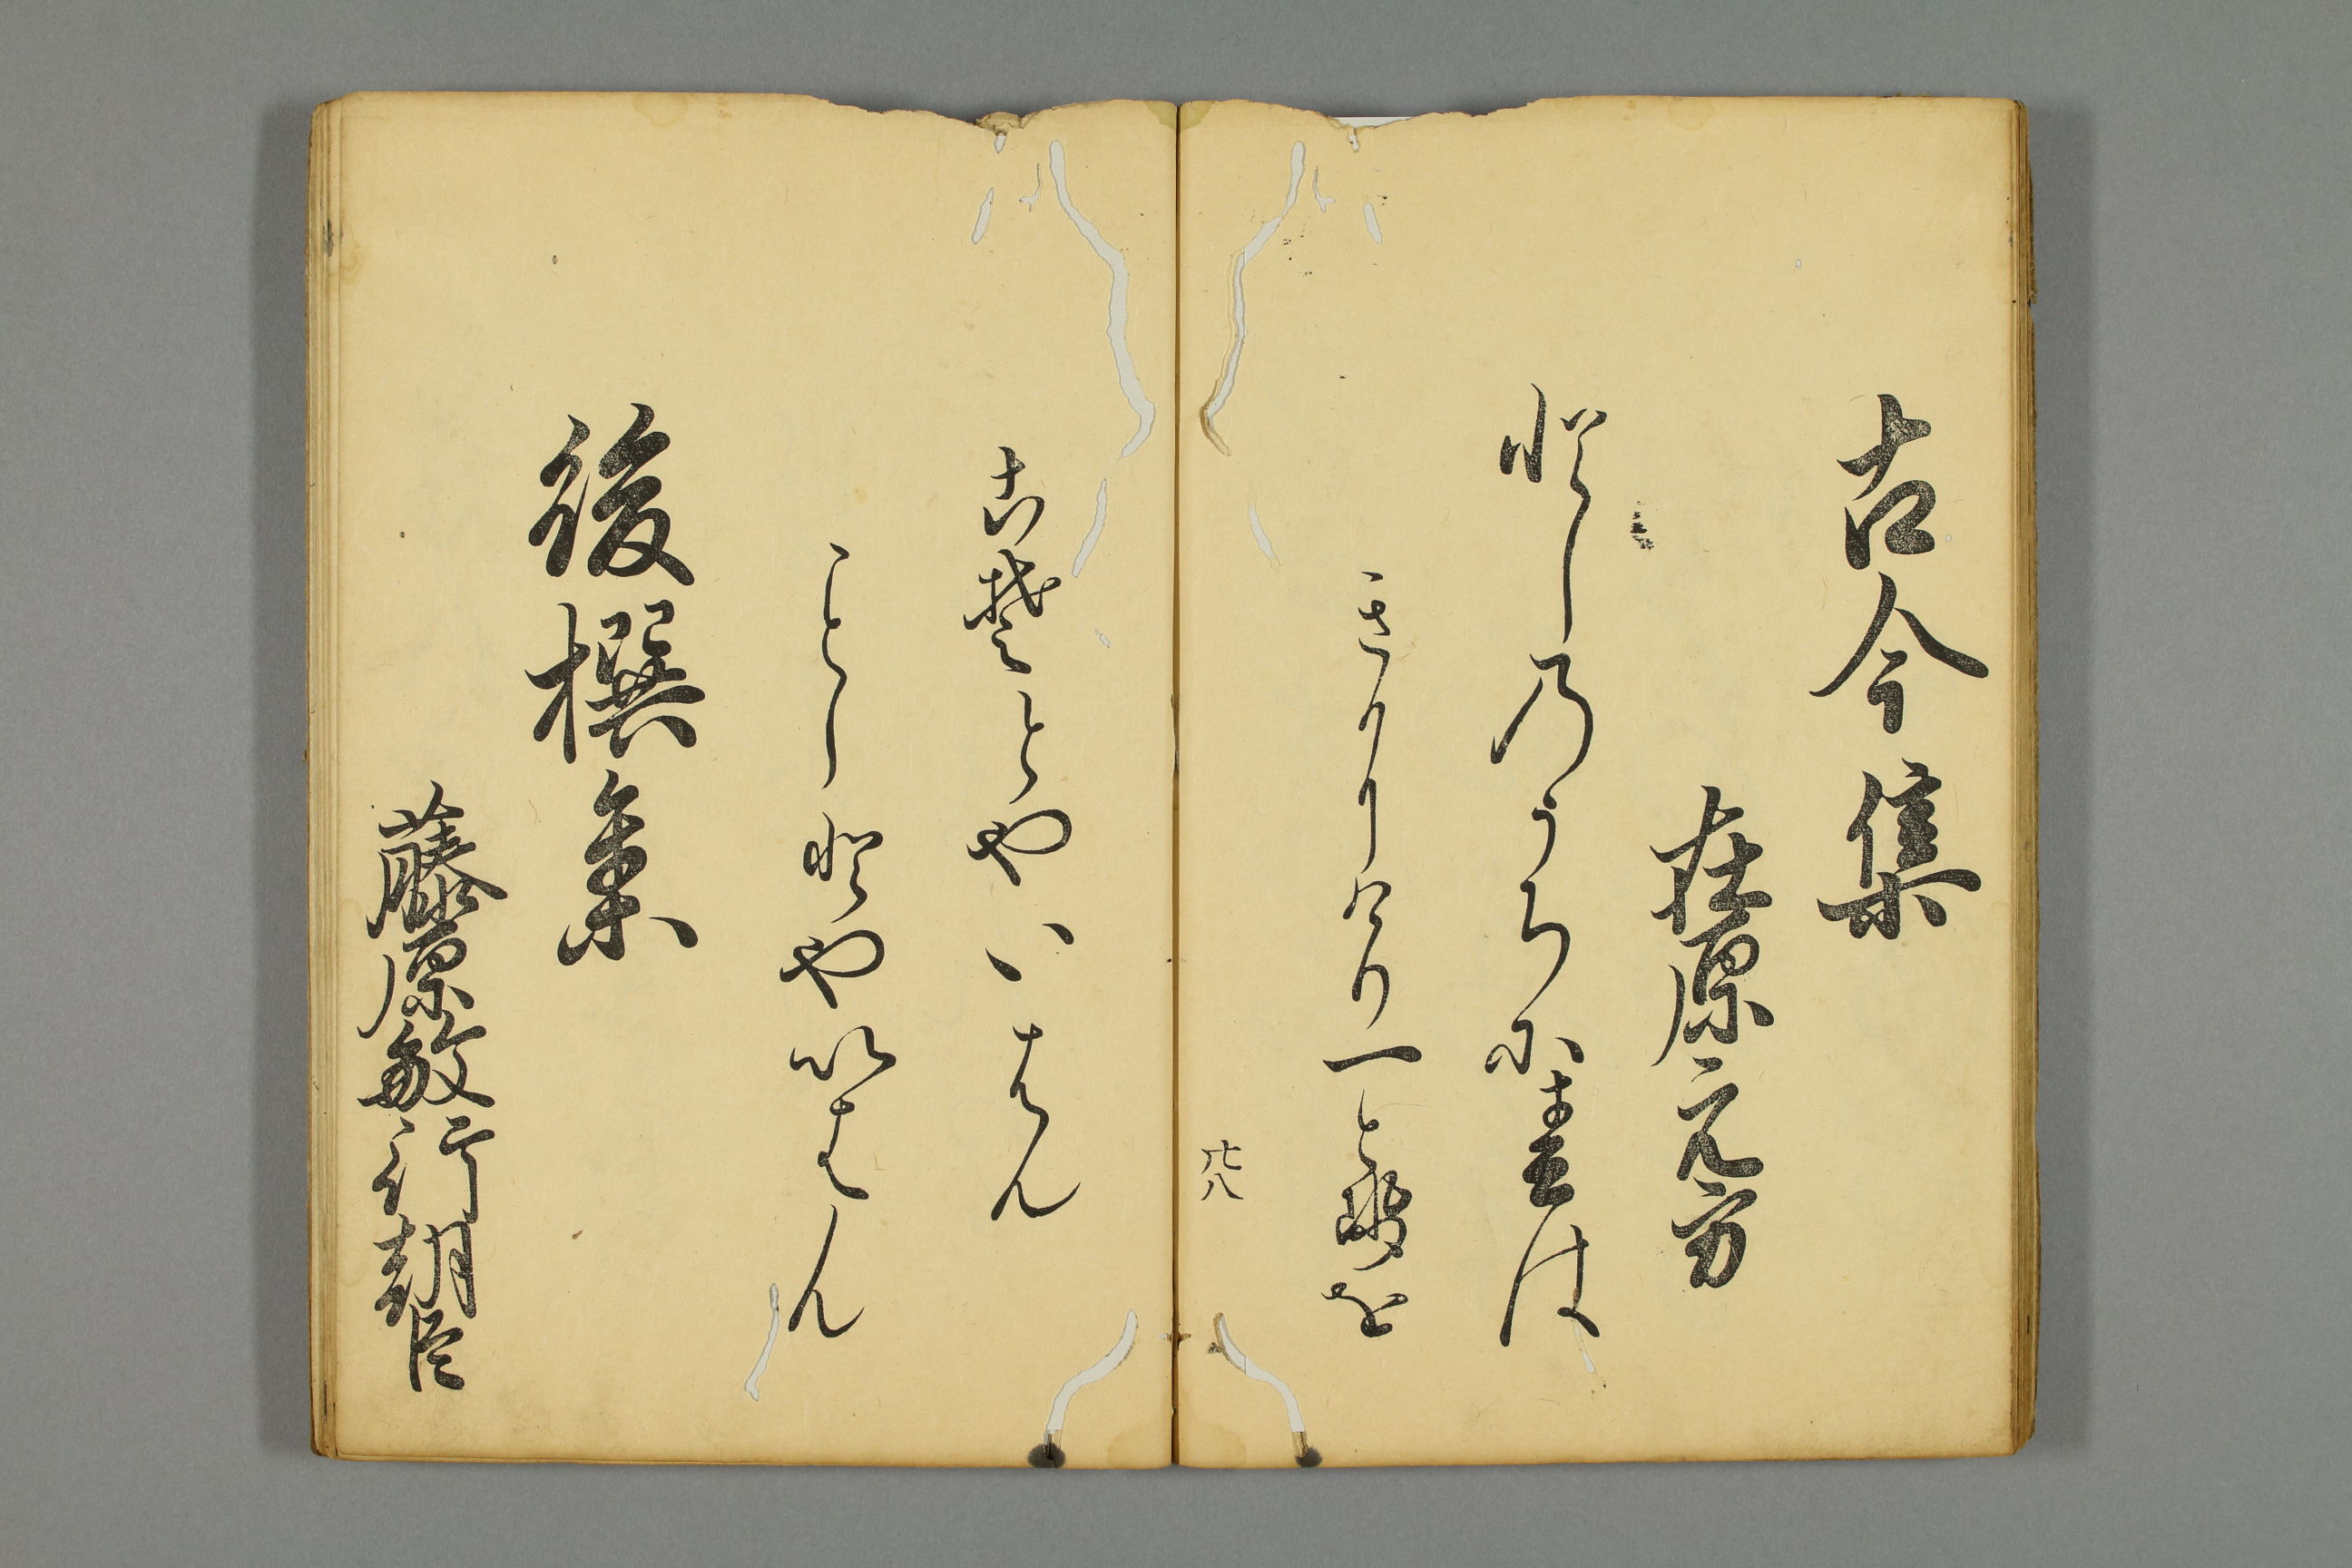 古今集
在原元方
としのうちに春は
きにけり一とせを
こそとやいはん
ことしとやいはん
後撰集
藤原敏行朝臣